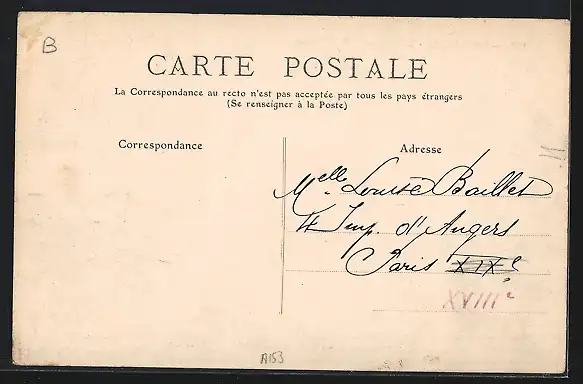 B
CARTE POSTALE
La Correspondance au recto n'est pas acceptée par tous les pays étrangers
(Se renseigner à la Poste)
Correspondance
Adresse
Melle Louise Baillet
4 Imp. d'Angers
Paris XIXe
XVIIIe
A153